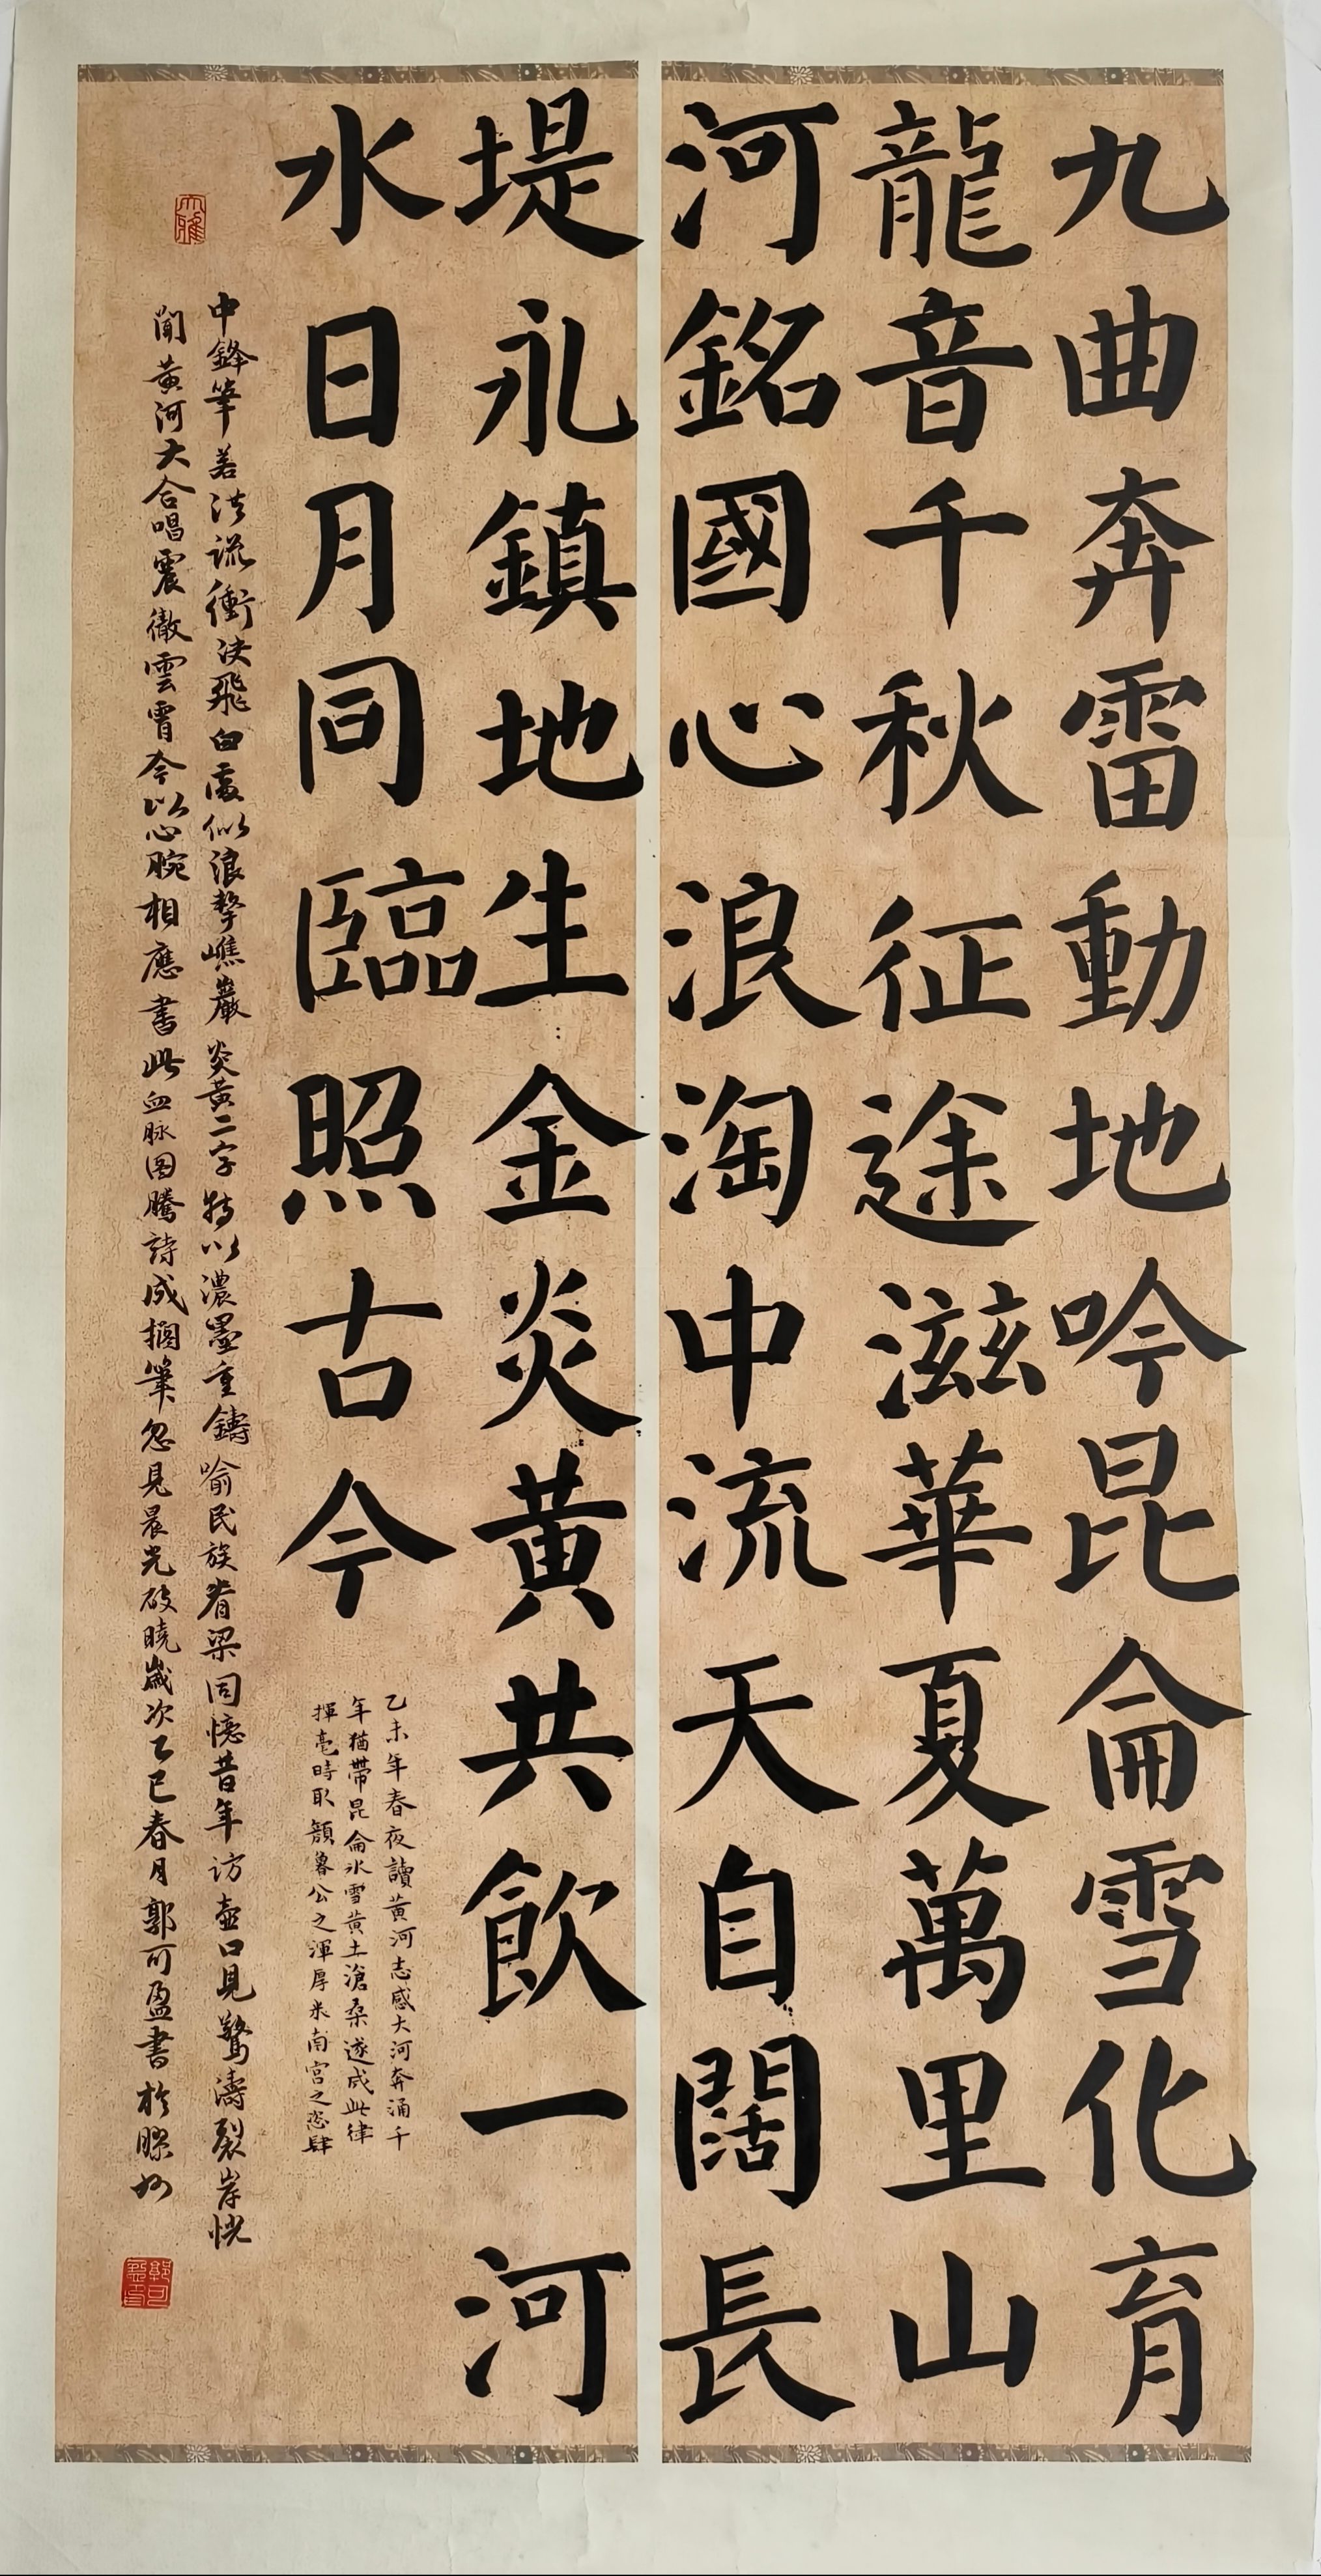 九曲奔雷動地吟昆侖雪化育
龍音千秋征途滋華夏萬里山
河銘國心浪淘中流天自闊長
堤永鎮地生金炎黃共飲一河
水日月同臨照古今
乙未年春夜讀黄河志感大河奔涌千
年猶帶昆侖氷雪黄土滄桑遂成此律
揮亳時取顏魯公之渾厚米南宫之恣肆
中鋒筆若洪流衝決飛白處似浪擊嶕巖炎黃二字特以濃墨重鑄喻民族脊梁回憶昔年访壺口見驚濤裂岸恍
聞黄河大合唱震徹雲霄今以心腕相應書此血脉图騰詩成擱筆忽見晨光破曉歲次乙巳春月郭可盈書於滕州
大雅
郭可盈印